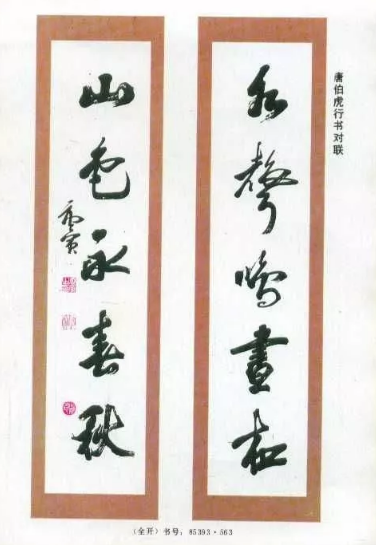 唐伯虎行书对联
水聲鳴晝夜
山色永春秋
唐寅
(全开) 书号：85393·563